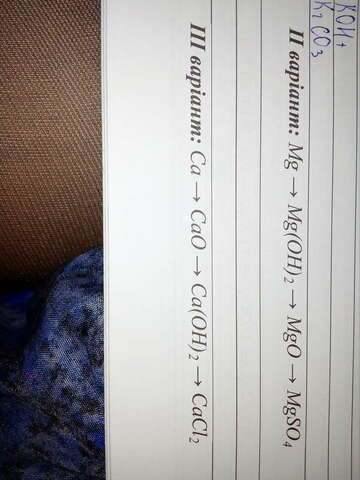 KOH +
K₂CO₃
II варіант: Mg → Mg(OH)₂ → MgO → MgSO₄
III варіант: Ca → CaO → Ca(OH)₂ → CaCl₂